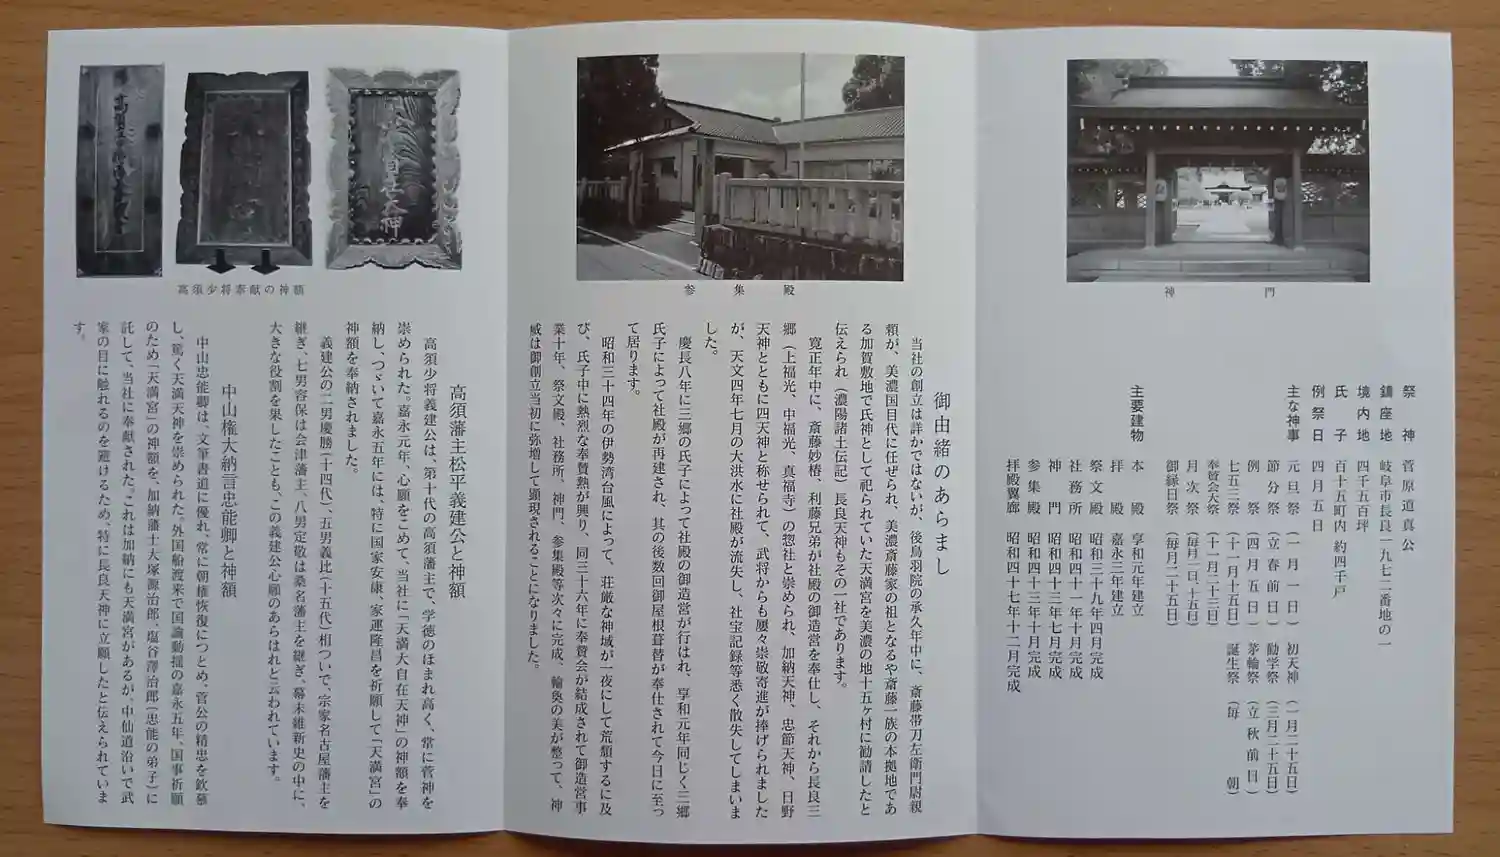 神門
祭神 菅原道真公
鎮座地 岐阜市長良一九七二番地の一
境内地 四千五百坪
氏子 百十五町内 約四千戸
例祭日 四月五日
主な神事 元旦祭(一月一日) 初天神(一月二十五日)
節分祭(立春前日) 勧学祭(三月二十五日)
例祭(四月五日) 茅輪祭(立秋前日)
七五三祭(十一月十五日) 誕生祭(毎朝)
奉賛会大祭(十一月二十三日)
月次祭(毎月一日、十五日)
御縁日祭(毎月二十五日)
主要建物 本殿 享和元年建立
拝殿 嘉永三年建立
祭文殿 昭和三十九年四月完成
社務所 昭和四十一年十月完成
神門 昭和四十三年七月完成
参集殿 昭和四十三年十月完成
拝殿翼廊 昭和四十七年十二月完成
参集殿
御由緒のあらまし
当社の創立は詳かではないが、後鳥羽院の承久年中に、斎藤帯刀左衛門尉親
頼が、美濃国目代に任ぜられ、美濃斎藤家の祖となるや斎藤一族の本拠地であ
る加賀敷地で氏神として祀られていた天満宮を美濃の地十五ヶ村に勧請したと
伝えられ(濃陽諸士伝記)長良天神もその一社であります。
寛正年中に、斎藤妙椿、利藤兄弟が社殿の御造営を奉仕し、それから長良三
郷(上福光、中福光、真福寺)の惣社と崇められ、加納天神、忠節天神、日野
天神とともに四天神と称せられて、武将からも屡々崇敬寄進が捧げられました
が、天文四年七月の大洪水に社殿が流失し、社宝記録等悉く散失してしまいま
した。
慶長八年に三郷の氏子によって社殿の御造営が行はれ、享和元年同じく三郷
氏子によって社殿が再建され、其の後数回御屋根葺替が奉仕されて今日に至っ
て居ります。
昭和三十四年の伊勢湾台風によって、荘厳な神域が一夜にして荒頽するに及
び、氏子中に熱烈な奉賛熱が興り、同三十六年に奉賛会が結成されて御造営事
業十年、祭文殿、社務所、神門、参集殿等次々に完成、輪奐の美が整って、神
威は御創立当初に弥増して顕現されることになりました。
高須少将奉献の神額
高須藩主松平義建公と神額
高須少将義建公は、第十代の高須藩主で、学徳のほまれ高く、常に菅神を
崇められた。嘉永元年、心願をこめて、当社に「天満大自在天神」の神額を奉
納し、つゞいて嘉永五年には、特に国家安康、家運隆昌を祈願して「天満宮」の
神額を奉納されました。
義建公の二男慶勝(十四代)、五男義比(十五代)相ついで、宗家名古屋藩主を
継ぎ、七男容保は会津藩主、八男定敬は桑名藩主を継ぎ、幕末維新史の中に、
大きな役割を果したことも、この義建公心願のあらはれと云われています。
中山権大納言忠能卿と神額
中山忠能卿は、文筆書道に優れ、常に朝権恢復につとめ、菅公の精忠を欽慕
し、篤く天満天神を崇められた。外国船渡来で国論動揺の嘉永五年、国事祈願
のため「天満宮」の神額を、加納藩士大塚源治郎、塩谷澤治郎(忠能の弟子)に
託して、当社に奉献された。これは加納にも天満宮があるが、中仙道沿いで武
家の目に触れるのを避けるため、特に長良天神に立願したと伝えられていま
す。